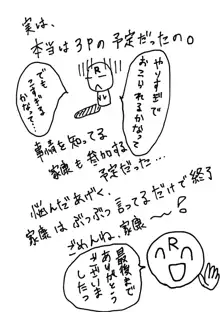 実は、
本当は3Pの予定だったの。
やりすぎで
おこられるかなって
でも
かずすぎる
かなって…
R
ル
事情を知ってる
家康も参加する
予定だった…
悩んだあげく、
家康はぶつぶつ言ってるだけで終了
ごめんね、家康〜!
R
最後まで
ありがとう
ございま
したっ